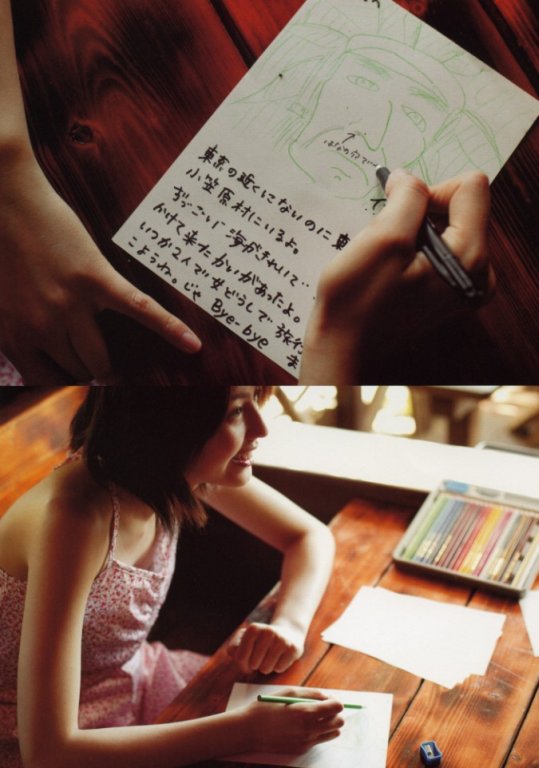 東京の近くにないのに東
小笠原村にいるよ。
すっごい海がきれいで‥
かけて来たかいがあったよ。
いつか2人で女どうしで旅行
こようね。じゃ Bye-bye ま